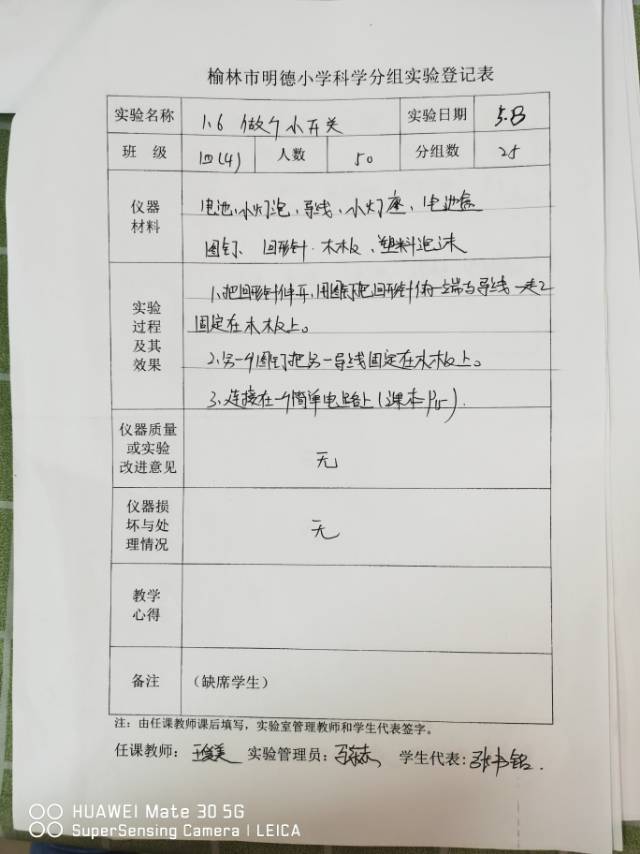 榆林市明德小学科学分组实验登记表
实验名称 1.6 做个小开关 实验日期 5.8
班 级 四(4) 人数 50 分组数 25
仪器材料 电池、小灯泡、导线、小灯座、电池盒
图钉、回形针、木板、塑料泡沫
实验过程及其效果 1、把回形针伸开,用图钉把回形针的一端与导线一起
固定在木板上。
2、另一个图钉把另一导线固定在木板上。
3、连接在一个简单电路上(课本P15).
仪器质量或实验改进意见 无
仪器损坏与处理情况 无
教学心得
备注 (缺席学生)
注:由任课教师课后填写,实验室管理教师和学生代表签字。
任课教师: 实验管理员: 学生代表:
HUAWEI Mate 30 5G
SuperSensing Camera | LEICA